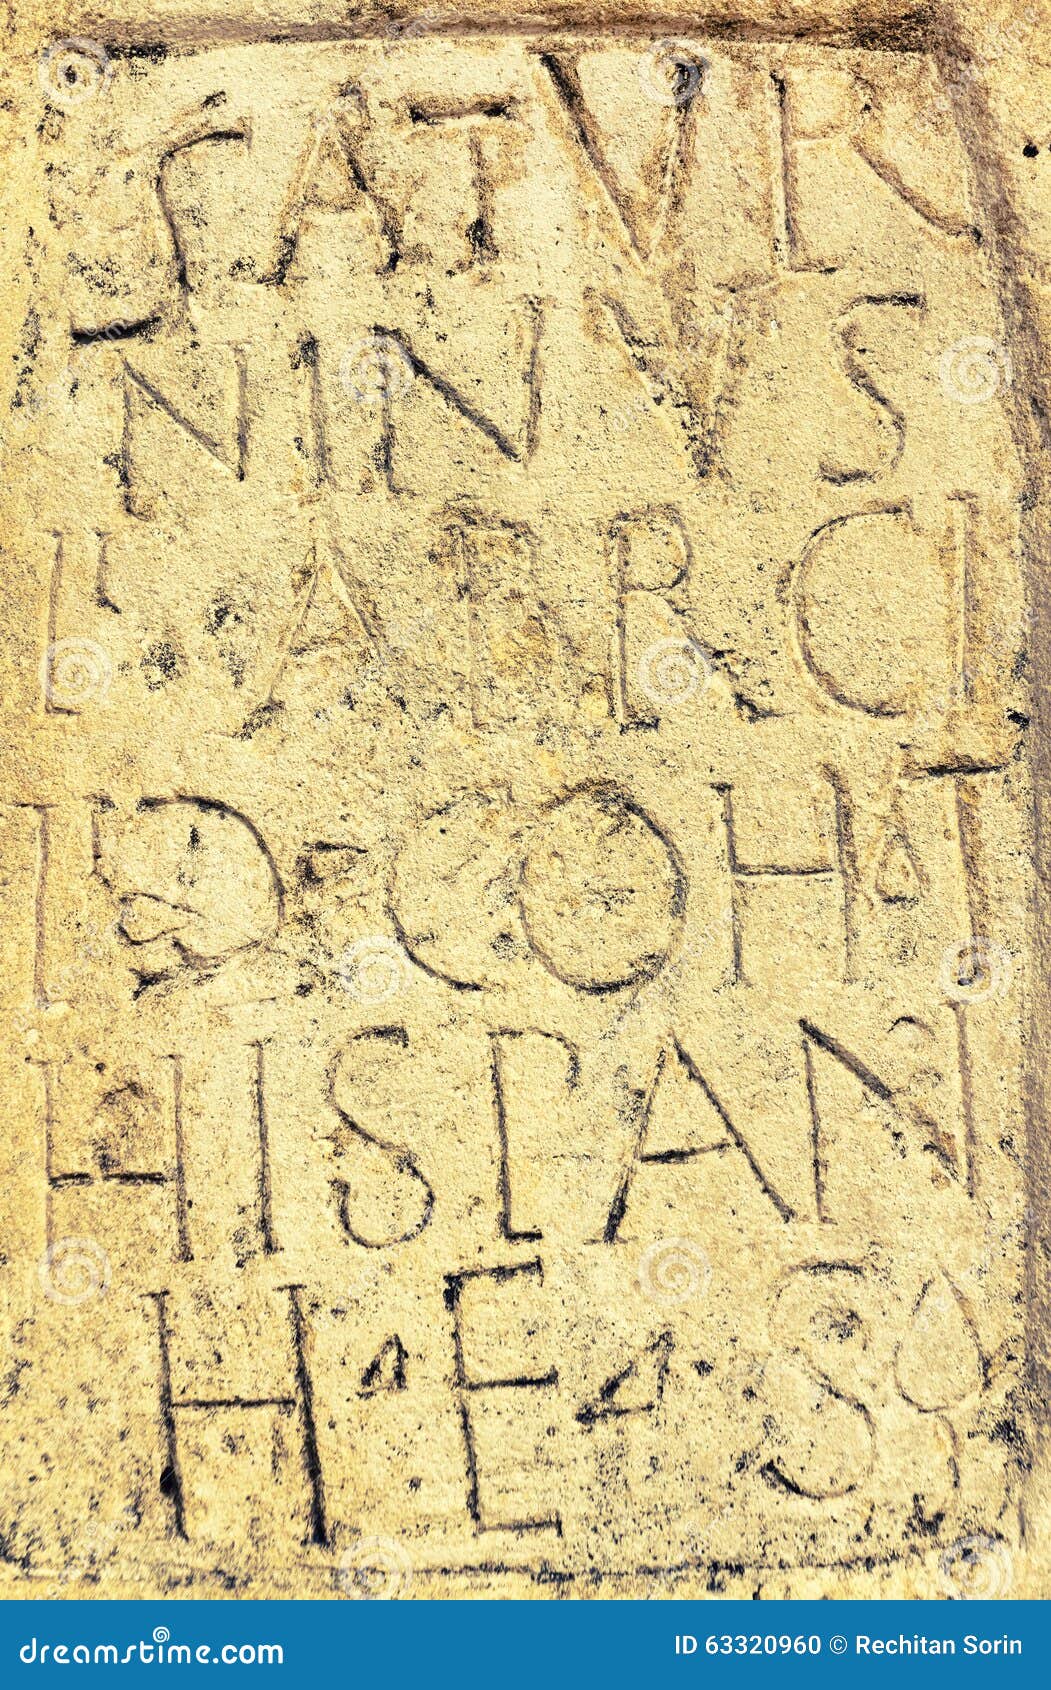 SATVR
NINVS
FABRCI
ID COH I
HISPANI
H E S
dreamstime.com
ID 63320960 © Rechitan Sorin